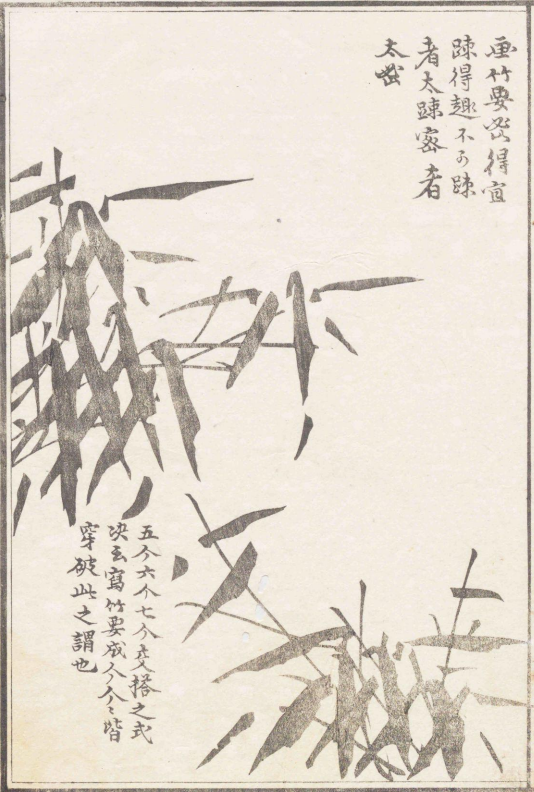 画竹要密得宜
踈得趣不可踈
者太踈密者
太密
五个六个七个交搭之式
决云寫竹要成个个〻皆
穿破此之謂也